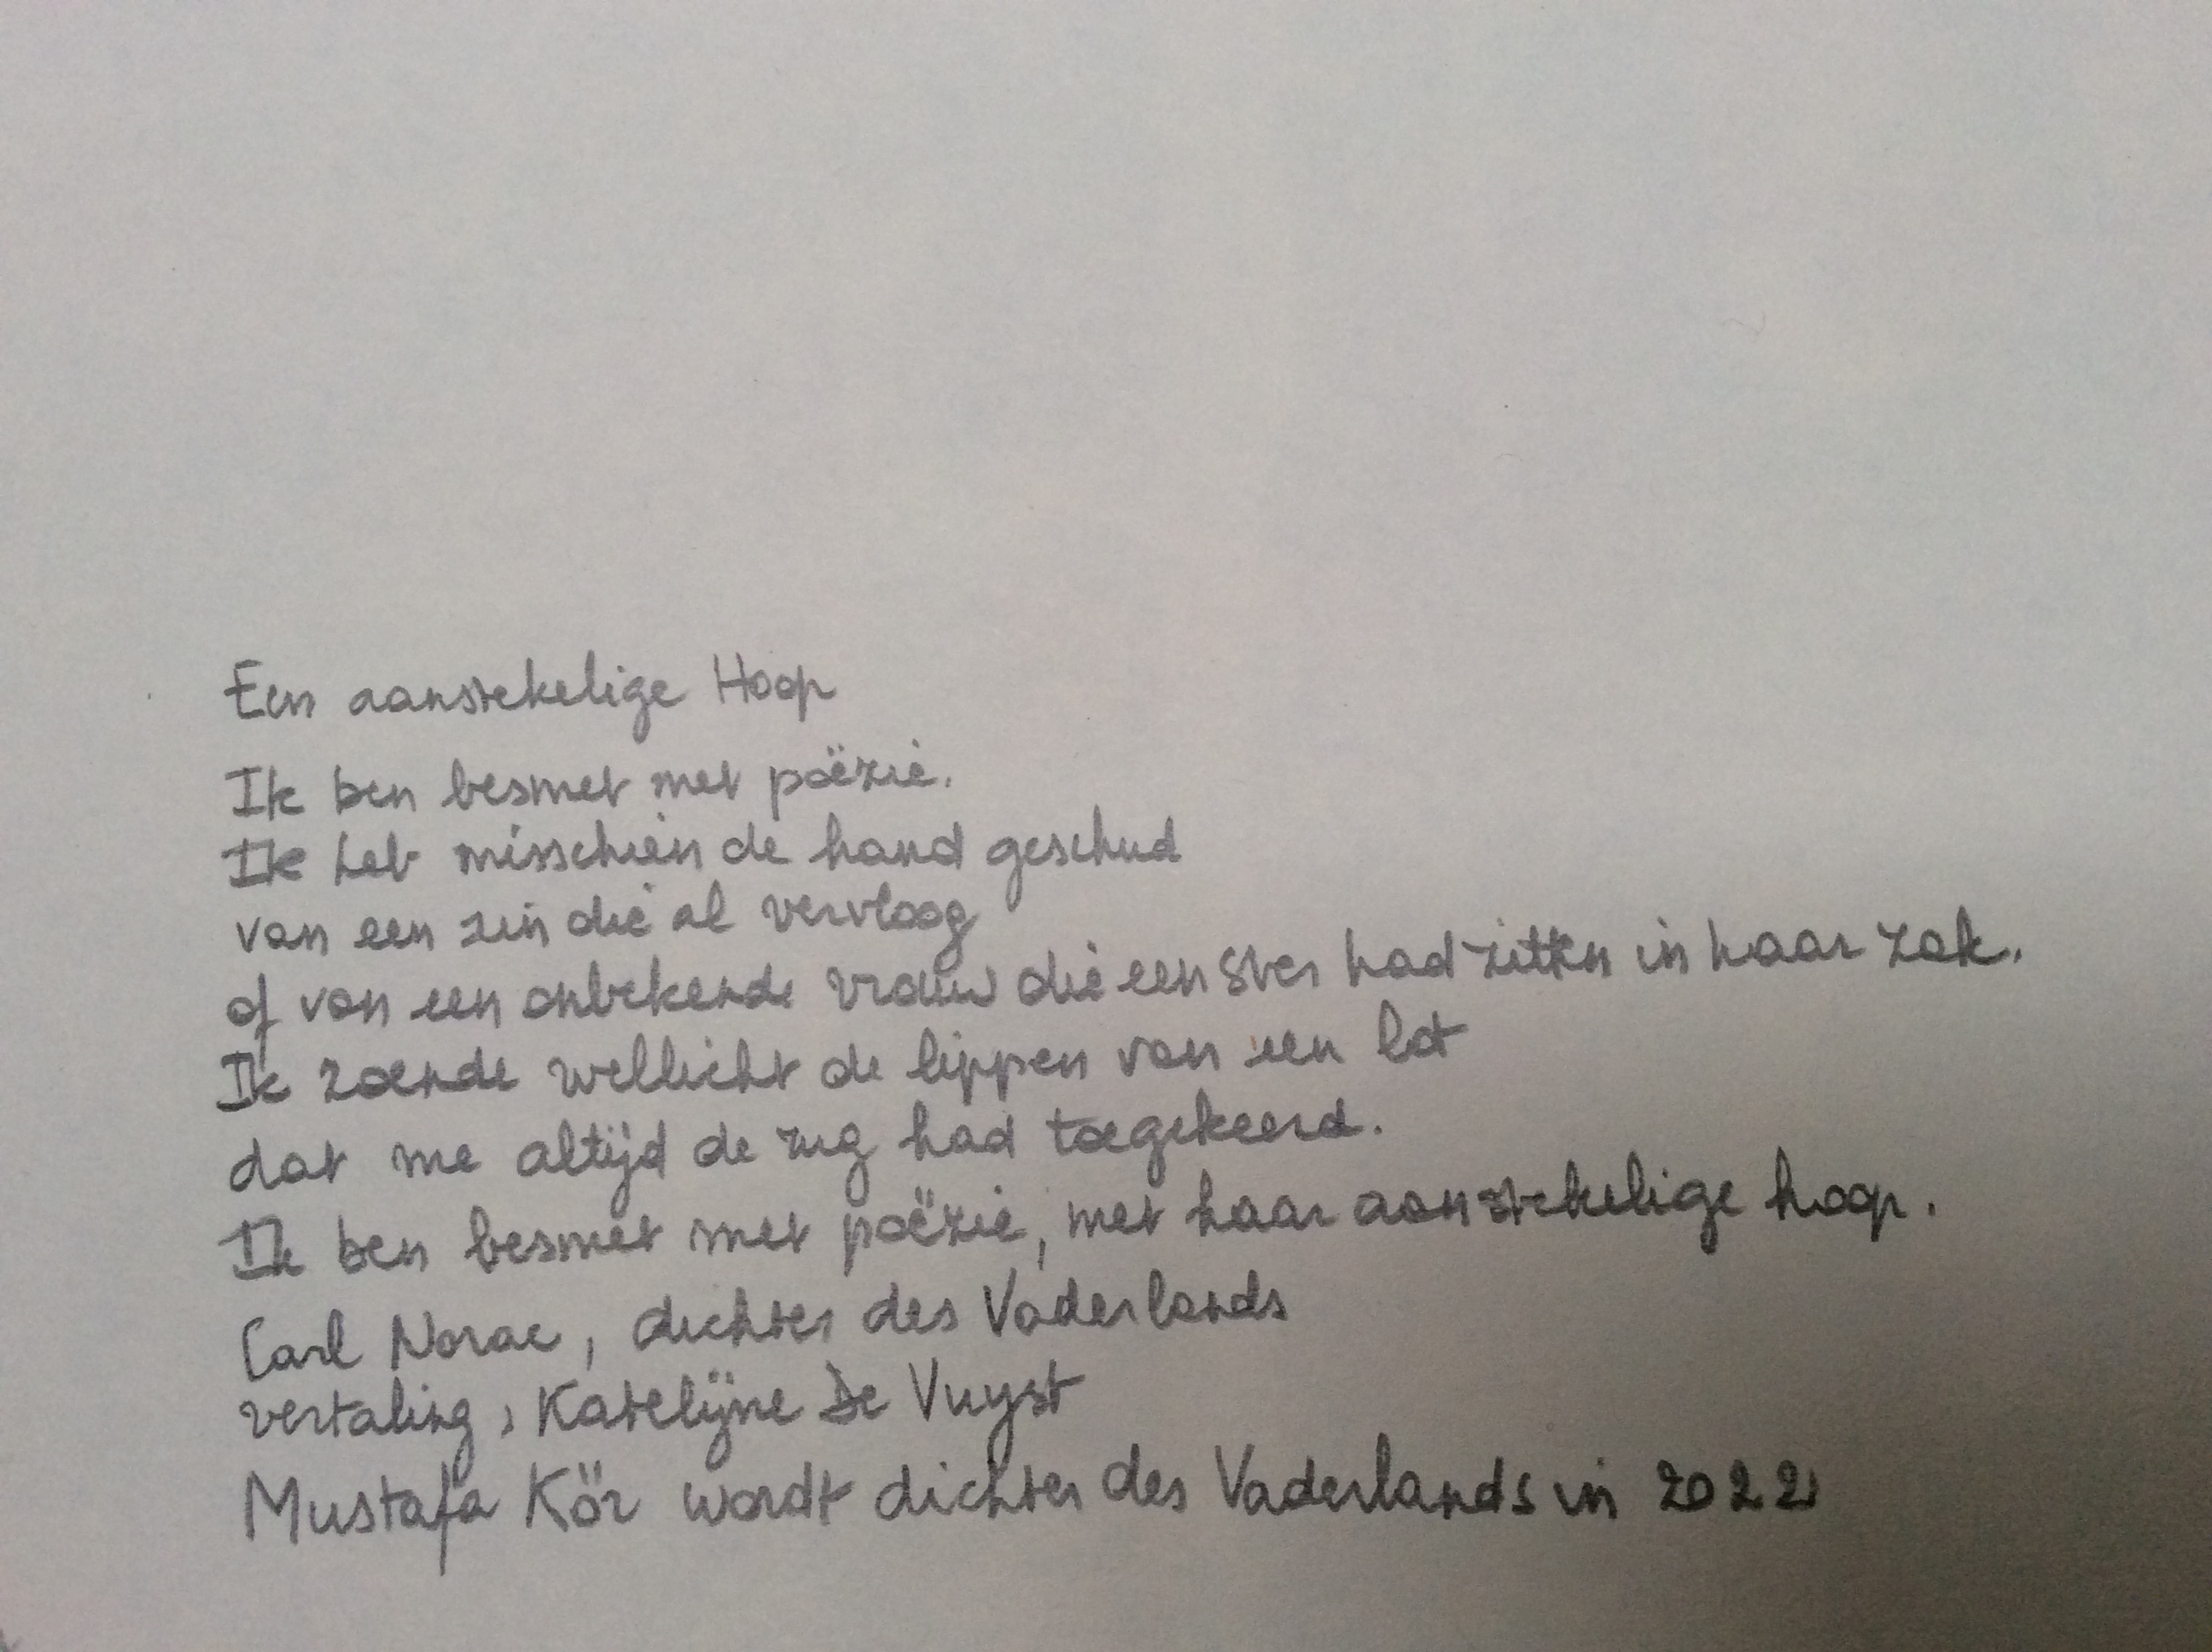 Een aanstekelige Hoop
Ik ben besmet met poëzie.
Ik heb misschien de hand geschud
van een zin die al vervloog
of van een onbekende vrouw die een ster had zitten in haar zak.
Ik zoende wellicht de lippen van een lot
dat me altijd de rug had toegekeerd.
Ik ben besmet met poëzie, met haar aanstekelige hoop.
Carl Norac, dichter des Vaderlands
vertaling, Katelijne De Vuyst
Mustafa Kör wordt dichter des Vaderlands in 2022